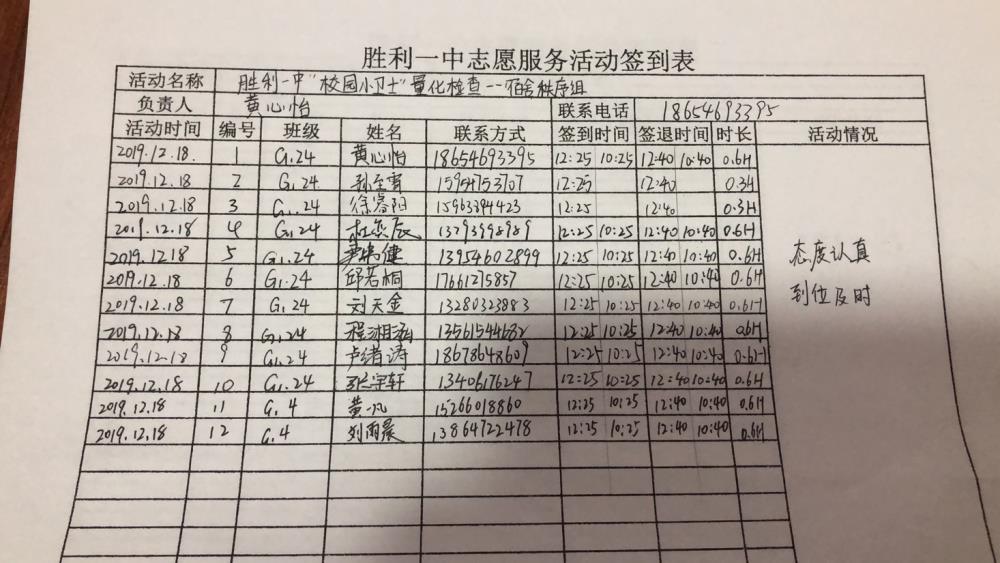 胜利一中志愿服务活动签到表
活动名称 胜利一中"校园小卫士"量化检查--宿舍秩序组
负责人 黄心怡 联系电话 18654693395
活动时间 编号 班级 姓名 联系方式 签到时间 签退时间 时长 活动情况
2019.12.18. 1 G1.24 黄心怡 18654693395 12:25 10:25 12:40 10:40 0.6H
2019.12.18 2 G1.24 15954753707 12:25 12:40 0.3H
2019.12.18 3 G1.24 徐睿阳 15963394423 12:25 12:40 0.3H
2019.12.18 4 G1.24 13793398989 12:25 10:25 12:40 10:40 0.6H
2019.12.18 5 G1.24 13954602899 12:25 10:25 12:40 10:40 0.6H
2019.12.18 6 G1.24 邱若桐 17661275857 12:25 10:25 12:40 10:40 0.6H
2019.12.18 7 G1.24 刘天金 13280323883 12:25 10:25 12:40 10:40 0.6H
2019.12.18 8 G1.24 程湘涵 13561544682 12:25 10:25 12:40 10:40 0.6H
2019.12.18 9 G1.24 卢绪涛 18678648609 12:25 10:25 12:40 10:40 0.6H
2019.12.18 10 G1.24 张宇轩 13406176247 12:25 10:25 12:40 10:40 0.6H
2019.12.18 11 G.4 黄一凡 15266018860 12:25 10:25 12:40 10:40 0.6H
2019.12.18 12 G.4 刘雨晨 13864722478 12:25 10:25 12:40 10:40 0.6H
态度认真
到位及时